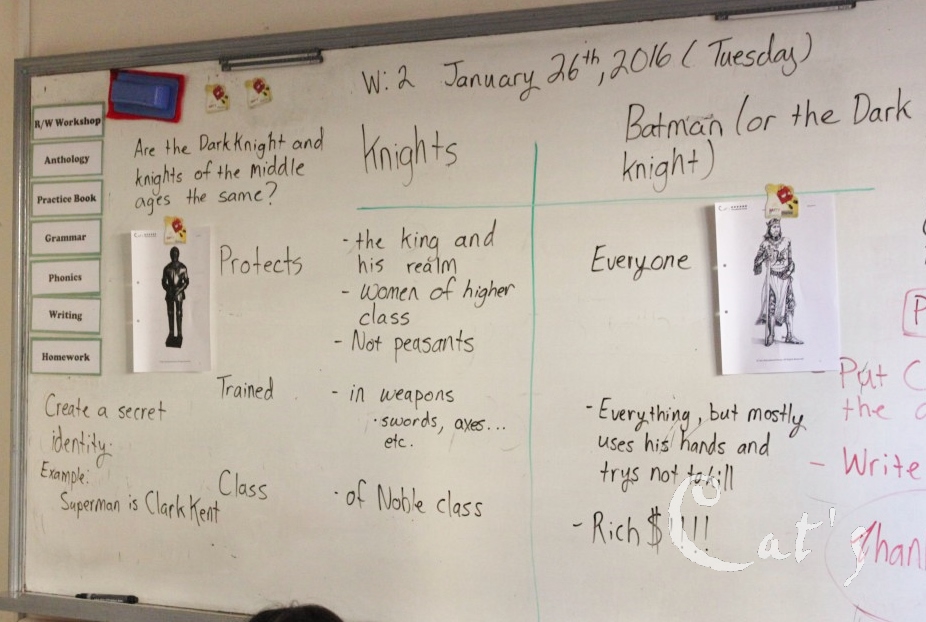 W: 2 January 26th, 2016 ( Tuesday)
R/W Workshop
Anthology
Practice Book
Grammar
Phonics
Writing
Homework
Are the Dark Knight and
knights of the middle
ages the same?
Knights
Batman (or the Dark
knight)
Protects
- the king and
his realm
- Women of higher
class
- Not peasants
Everyone
Trained
- in weapons
· swords, axes...
etc.
- Everything, but mostly
uses his hands and
trys not to kill
Class
· of Noble class
- Rich $ !!!
Create a secret
identity.
Example:
Superman is Clark Kent
- Put
the
- Write
Cat's